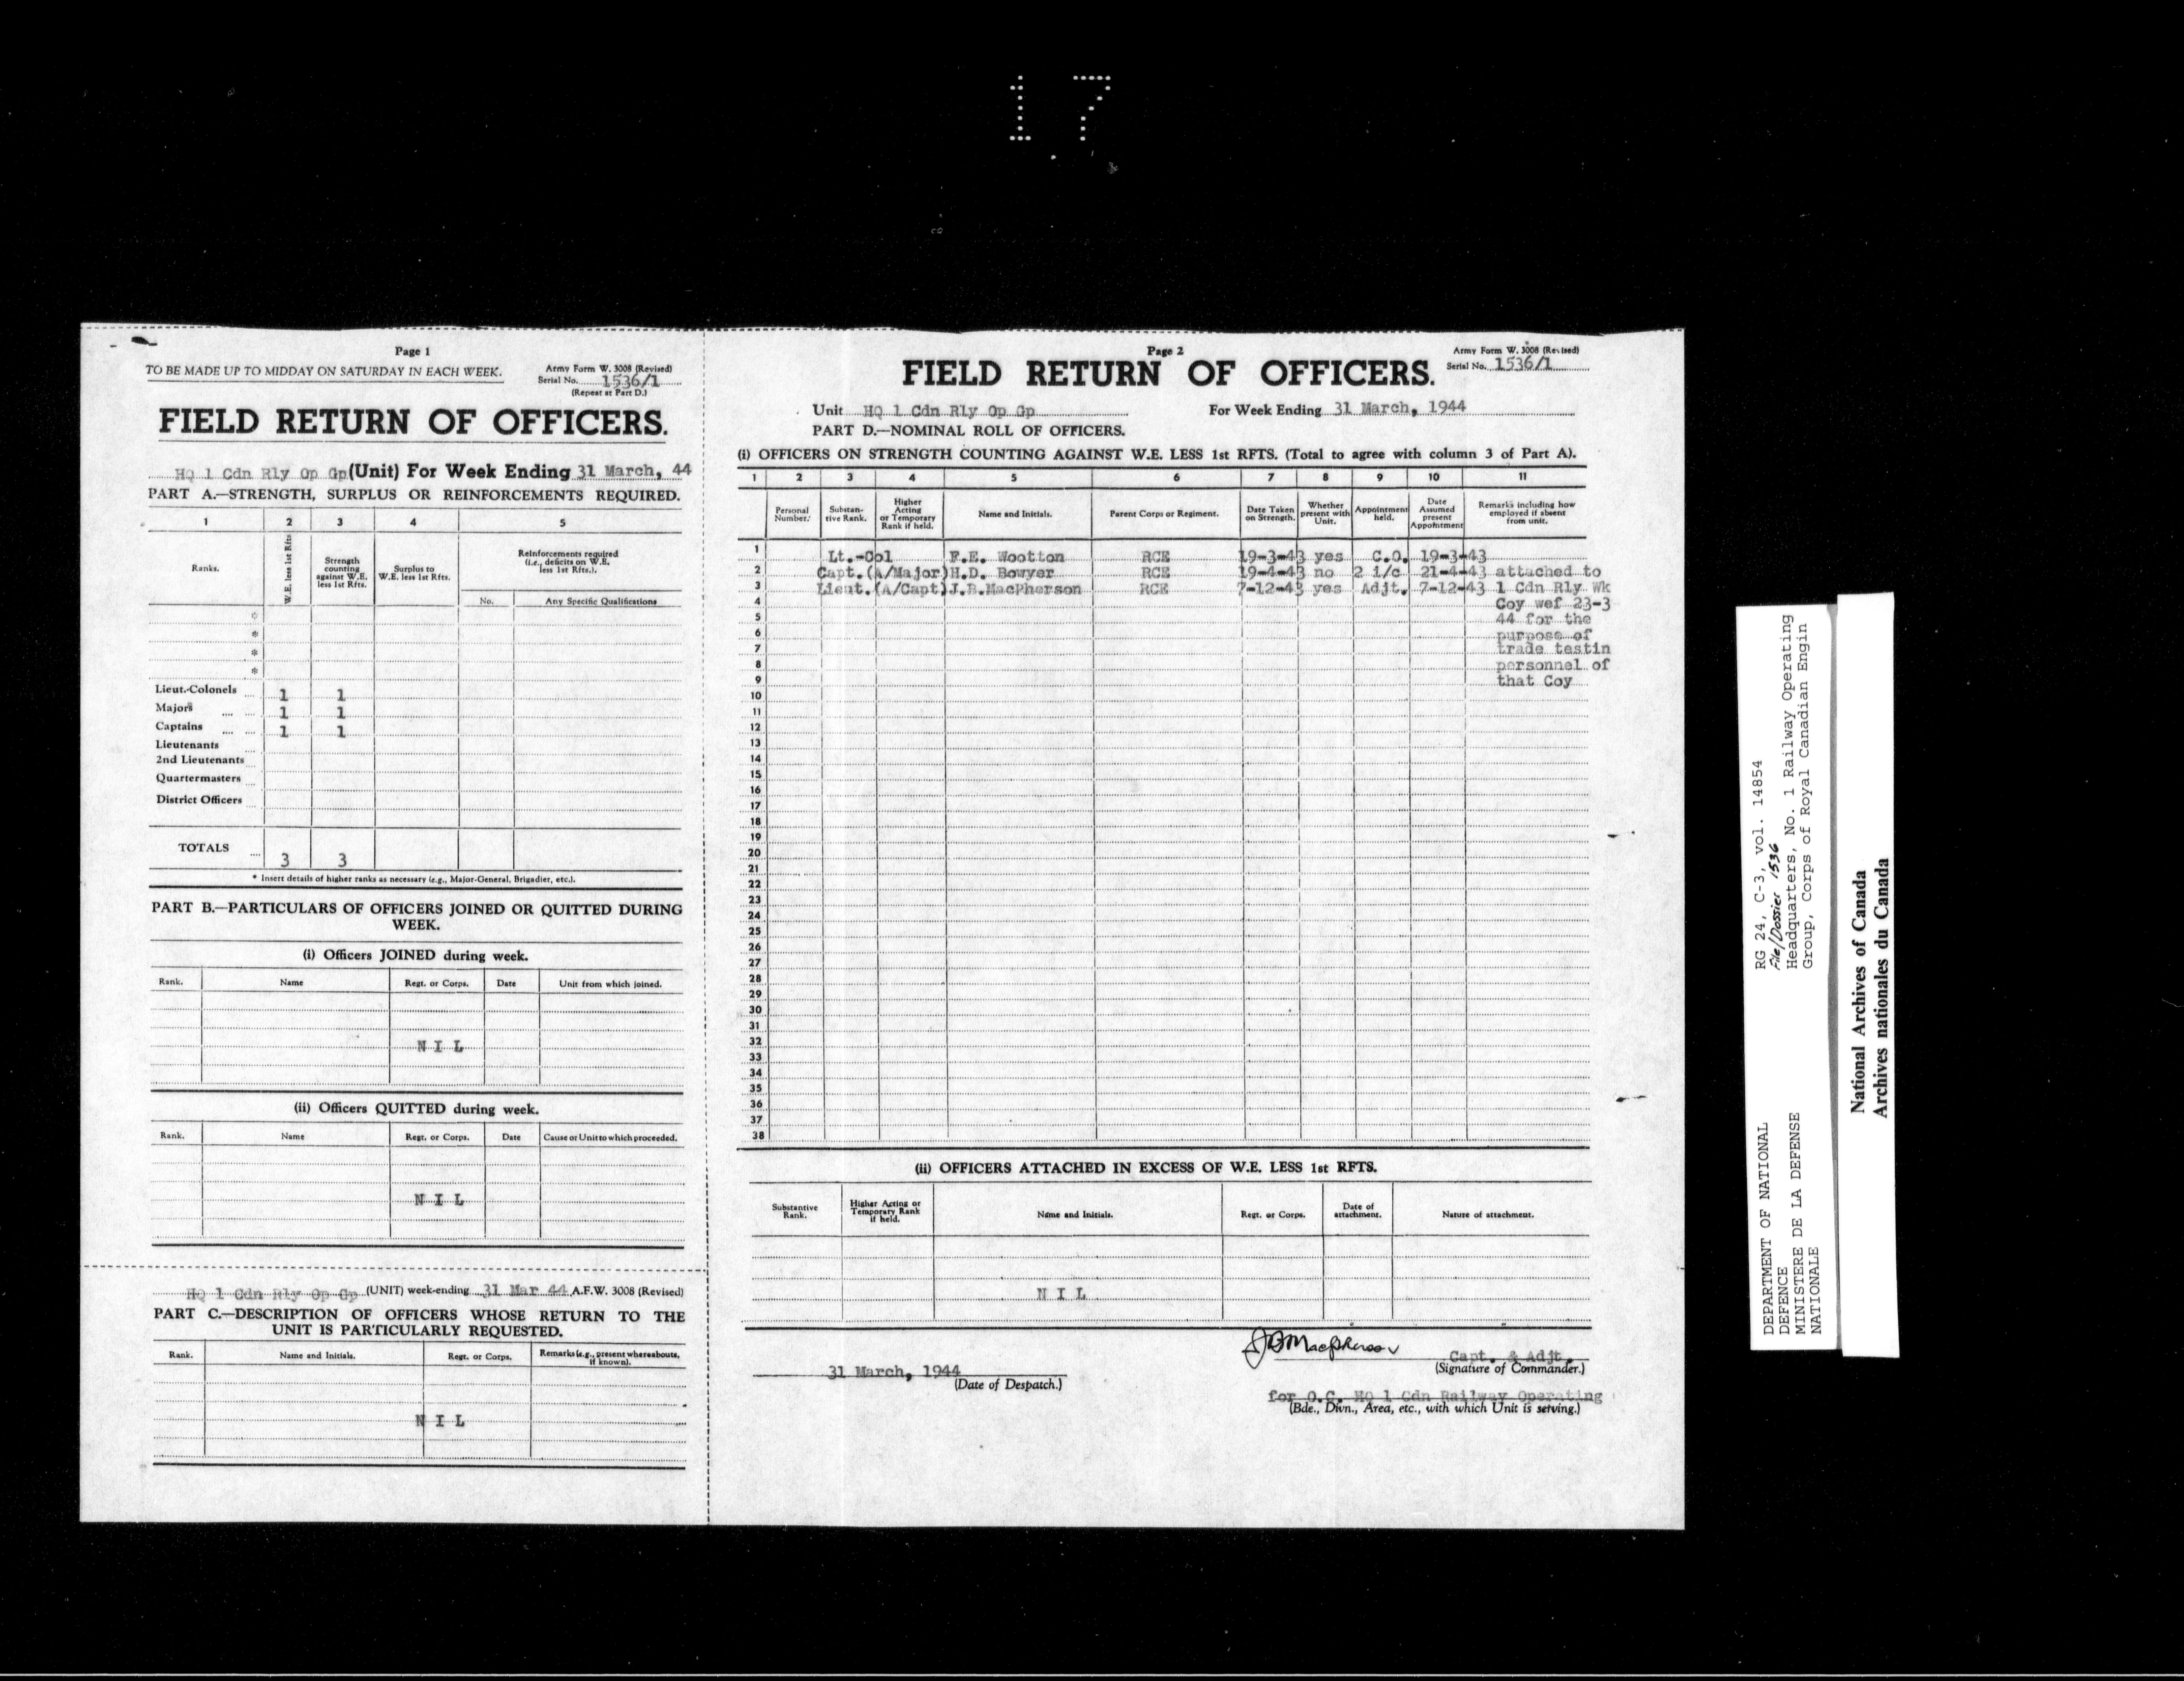 17
Page 1
TO BE MADE UP TO MIDDAY ON SATURDAY IN EACH WEEK.
Army Form W. 3008 (Revised)
Serial No. 1536/1
(Repeat at Part D.)
FIELD RETURN OF OFFICERS.
HQ 1 Cdn Rly Op Gp (Unit) For Week Ending 31 March, 44
PART A.—STRENGTH, SURPLUS OR REINFORCEMENTS REQUIRED.
1 2 3 4 5
Ranks.
W.E. less 1st Rfts
Strength counting against W.E. less 1st Rfts.
Surplus to W.E. less 1st Rfts.
Reinforcements required (i.e., deficits on W.E. less 1st Rfts.).
No. Any Specific Qualifications
*
*
*
*
Lieut.-Colonels .... 1 1
Majors .... .... 1 1
Captains .... .... 1 1
Lieutenants ....
2nd Lieutenants ....
Quartermasters ....
District Officers ....
TOTALS .... 3 3
* Insert details of higher ranks as necessary (e.g., Major-General, Brigadier, etc.).
PART B.—PARTICULARS OF OFFICERS JOINED OR QUITTED DURING
WEEK.
(i) Officers JOINED during week.
Rank. Name Regt. or Corps. Date Unit from which joined.
N I L
(ii) Officers QUITTED during week.
Rank. Name Regt. or Corps. Date Cause or Unit to which proceeded.
N I L
HQ 1 Cdn Rly Op Gp (UNIT) week-ending 31 Mar 44 A.F.W. 3008 (Revised)
PART C.—DESCRIPTION OF OFFICERS WHOSE RETURN TO THE
UNIT IS PARTICULARLY REQUESTED.
Rank. Name and Initials. Regt. or Corps. Remarks (e.g., present whereabouts, if known).
N I L
Page 2
Army Form W. 3008 (Revised)
Serial No. 1536/1
FIELD RETURN OF OFFICERS.
Unit HQ 1 Cdn Rly Op Gp For Week Ending 31 March, 1944
PART D.—NOMINAL ROLL OF OFFICERS.
(i) OFFICERS ON STRENGTH COUNTING AGAINST W.E. LESS 1st RFTS. (Total to agree with column 3 of Part A).
1 2 3 4 5 6 7 8 9 10 11
Personal Number.
Substan-tive Rank.
Higher Acting or Temporary Rank if held.
Name and Initials.
Parent Corps or Regiment.
Date Taken on Strength.
Whether present with Unit.
Appointment held.
Date Assumed present Appointment
Remarks including how employed if absent from unit.
1 Lt.-Col F.E. Wootton RCE 19-3-43 yes C.O. 19-3-43
2 Capt. (A/Major) H.D. Bowyer RCE 19-4-43 no 2 i/c 21-4-43 attached to
3 Lieut. (A/Capt) J.B.MacPherson RCE 7-12-43 yes Adjt. 7-12-43 1 Cdn Rly Wk
4 Coy wef 23-3
5 44 for the
6 purpose of
7 trade testin
8 personnel of
9 that Coy
10
11
12
13
14
15
16
17
18
19
20
21
22
23
24
25
26
27
28
29
30
31
32
33
34
35
36
37
38
(ii) OFFICERS ATTACHED IN EXCESS OF W.E. LESS 1st RFTS.
Substantive Rank. Higher Acting or Temporary Rank if held. Name and Initials. Regt. or Corps. Date of attachment. Nature of attachment.
N I L
JBMacpherson
Capt. & Adjt.
(Signature of Commander.)
31 March, 1944
(Date of Despatch.)
for O.C. HQ 1 Cdn Railway Operating
(Bde., Divn., Area, etc., with which Unit is serving.)
DEPARTMENT OF NATIONAL
DEFENCE
MINISTERE DE LA DEFENSE
NATIONALE
RG 24, C-3, vol. 14854
File/Dossier 1536
Headquarters, No. 1 Railway Operating
Group, Corps of Royal Canadian Engin
National Archives of Canada
Archives nationales du Canada